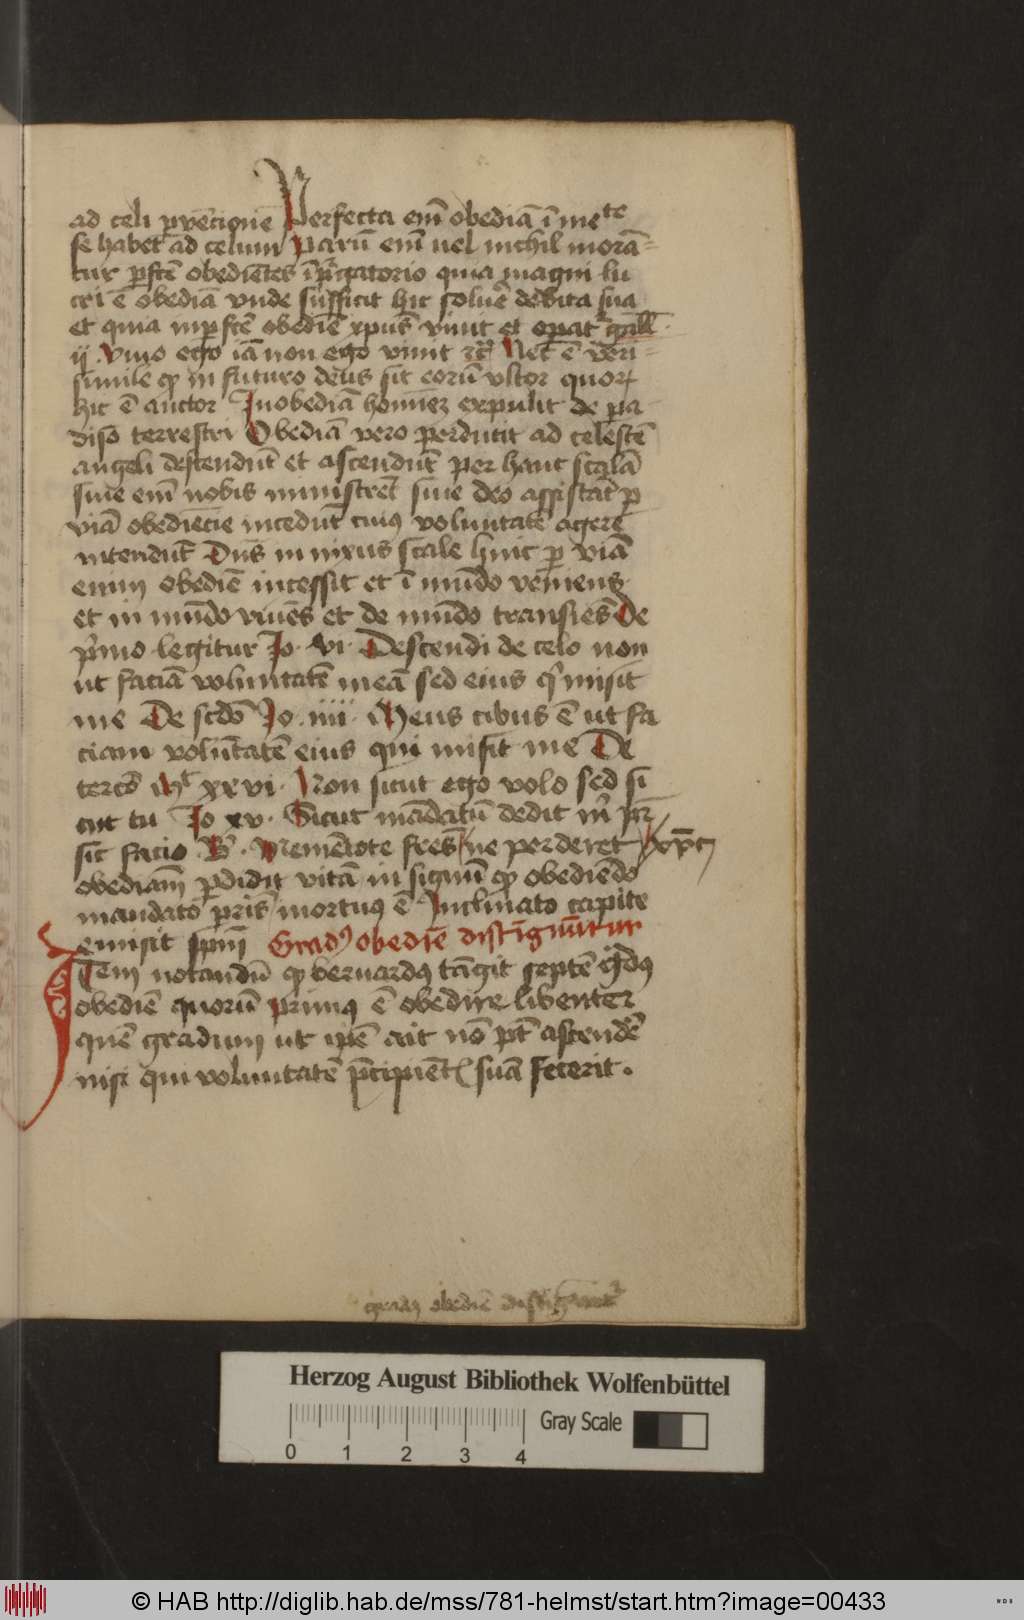 ad celi pvēcionē Perfecta em̄ obediā ī mēte
se habet ad celum Parū em̄ uel nichil morā=
tur pfcē obediētes ī pgatorio quia magni lu
cri ē obediā vnde sufficit hic soluē debita sua
et quia in pfcē obediē xpus viuit et opat gall
ij . viuo ego iā non ego viuit Nec ē veri=
simile qp in futuro deus sit eorū vltor quoꝝ
hic ē auctor Inobediā hominez expulit de pa
diso terrestri Obediā vero perducit ad celestē
angeli descendūt et ascendūt per hanc scalā
siue em̄ nobis ministrēt siue deo assistāt p
viā obediēcie incedūt cuiꝯ voluntatē agere
intendūt Dn̄s innixus scale huic p viā
enim obediē incessit et ī mūdo veniens
et in mūdo viuēs et de mūdo transiēs De
pmo legitur Jo . vi . Descendi de celo non
ut faciā voluntatē meā sed eius q misit
me De scdo Jo . iiii . Meus cibus ē ut fa
ciam volūtatē eius qui misit me De
tercō Mt xxvi . Non sicut ego volo sed si
cut tu Jo xv . Sicut mādatū dedit m pr
sic facio B . Mementote fres ne perderet xpc
obediam pdidit vitā in signū qp obediēdo
mandato pris mortuꝯ ē Inclinato capite
emisit spm Gradꝯ obediē distīguūtur
Item notandū qp bernardꝯ tāgit septē gdꝯ
obediē quorū primꝯ ē obedire libenter
quē gradum ut ipē ait nō pt ascendē
nisi qui voluntatē pcipiēt suā fecerit .
gradꝯ obediē distīguūt
Herzog August Bibliothek Wolfenbüttel
Gray Scale
0 1 2 3 4
© HAB http://diglib.hab.de/mss/781-helmst/start.htm?image=00433